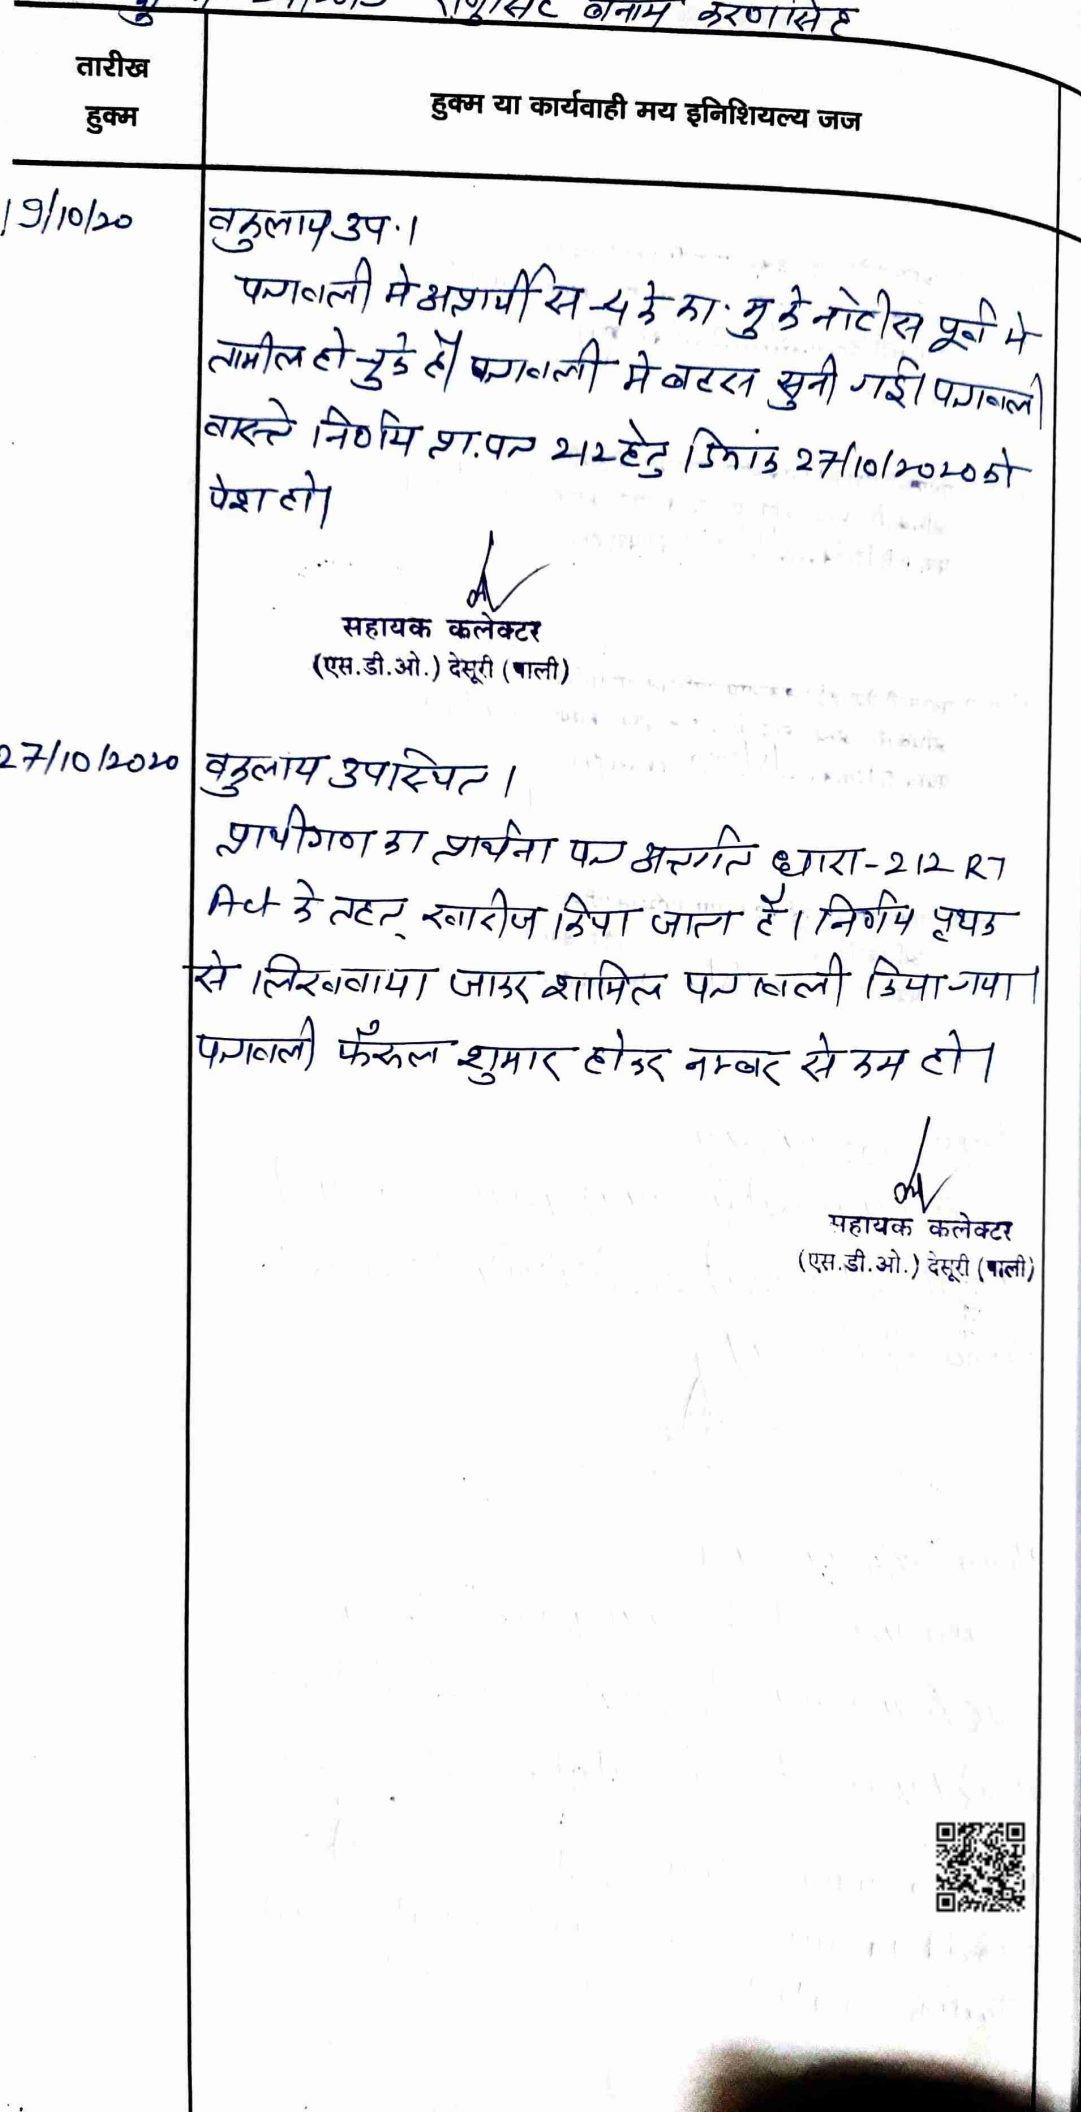 बनाम करणसिंह
तारीख
हुक्म
हुक्म या कार्यवाही मय इनिशियल्य जज
19/10/20
वकुलाय उप.।
पत्रावली मे अप्रार्थी स 4 के का. मु के नोटीस पूर्व मे
तामील हो चुके है। पत्रावली मे बहस सुनी गई। पत्रावली
वास्ते निर्णय प्रा.पत्र 212 हेतु दिनांक 27/10/2020 को
पेश हो।
सहायक कलेक्टर
(एस.डी.ओ.) देसूरी (पाली)
27/10/2020
वकुलाय उपस्थित।
प्रार्थीगण का प्रार्थना पत्र अन्तर्गत धारा-212 RT
Act के तहत् खारीज किया जाता है। निर्णय पृथक
से लिखवाया जाकर शामिल पत्रावली किया गया।
पत्रावली फैसल शुमार होकर नम्बर से कम हो।
सहायक कलेक्टर
(एस.डी.ओ.) देसूरी (पाली)